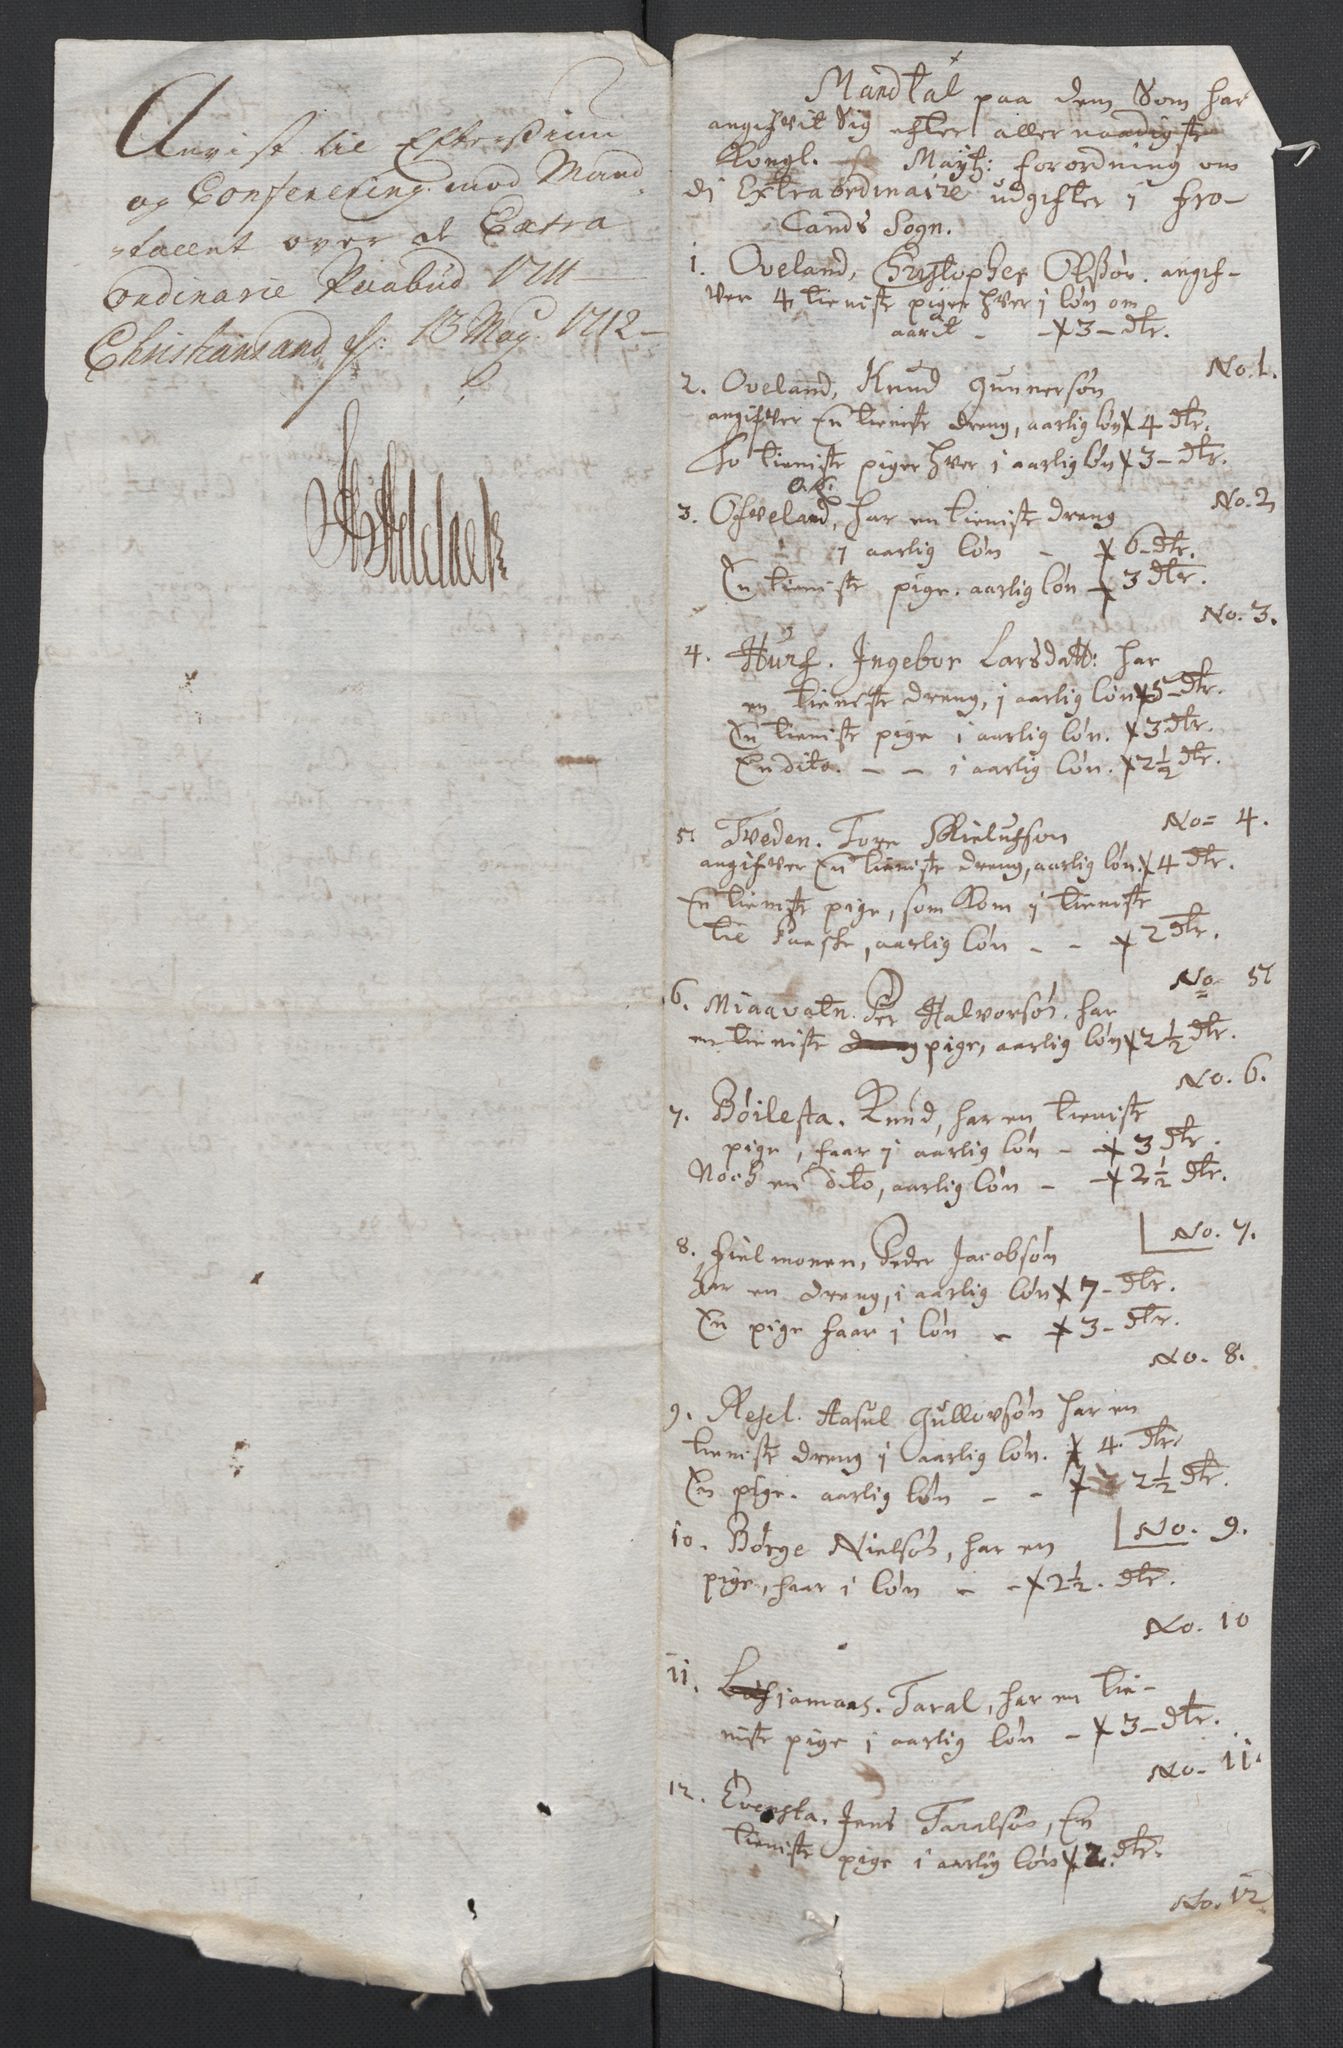 Anvist til Eftersiun
og Conferering mod Mand
tallent over de Extra
ordinarie Paabud 1711
Christiansand d: 13 May 1712
Mandtal paa dem Som har
angifvit Sig efter aller naadigste
Kongl. Mayt: forordning om
di Extraordinaire udgifter i Fro-
lands Sogn.
1. Oveland, Christopher Olsøn. angif-
ver 4 tieniste piger hver i løn om
aarit - - 3 - dlr.
No. 1.
2. Oveland, Knud Gunnersøn
angifver En tieniste dreng, aarlig løn 4 dlr.
To tieniste piger hver i aarlig løn 3 - dlr.
No. 2
3. Ofveland, har en tieniste dreng
i aarlig løn - 6 - dlr.
En tieniste pige. aarlig løn - 3 dlr.
No. 3.
4. Hurf. Ingebor Larsdatt: har
en tieniste dreng, i aarlig løn 5 - dlr.
En tieniste pige i aarlig løn. 3 dlr.
En dito. - - i aarlig løn. 2½ dlr.
No = 4.
5. Tveden. Tore Kielufson
angifver En tieniste dreng, aarlig løn. 4 dlr.
En tieniste pige, som kom i tieniste
til paaske, aarlig løn - - 2 dlr.
No 5
6. Miaavatn. Per Halvorsøn. har
en tieniste pige, aarlig løn 2½ dlr.
No. 6.
7. Bøilesta. Knud, har en tieniste
pige, faar i aarlig løn - 3 dlr.
Noch en dito, aarlig løn - - 2½ dlr.
No. 7.
8. Hielmonen, Peder Jacobsøn
har en dreng, i aarlig løn 7 - dlr.
En pige faar i løn - 3 - dlr.
No. 8.
9. Resel. Aasul Gullovsøn har en
tieniste dreng i aarlig løn. 4. dlr.
En pige. aarlig løn - - 2½ dlr.
No. 9.
10. Børge Nielsøn, har en
pige, faar i løn - - 2½. dlr.
No. 10
11. Taral, har en tie-
niste pige i aarlig løn - 3 - dlr.
No. 11.
12. Evensta. Jens Taralsøn, En
tieniste pige i aarlig løn 2. dlr.
No. 12